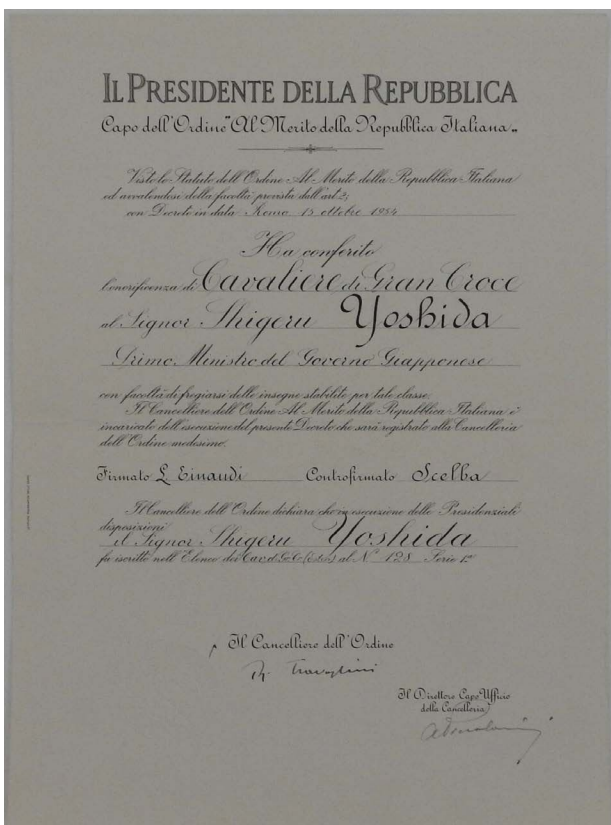 IL PRESIDENTE DELLA REPUBBLICA
Capo dell'Ordine "Al Merito della Repubblica Italiana„
Visto lo Statuto dell'Ordine Al Merito della Repubblica Italiana
ed avvalendosi della facoltà prevista dall'art. 2;
con Decreto in data Roma 15 ottobre 1954
Ha conferito
l'onorificenza di Cavaliere di Gran Croce
al Signor Shigeru Yoshida
Primo Ministro del Governo Giapponese
con facoltà di fregiarsi delle insegne stabilite per tale classe.
Il Cancelliere dell'Ordine Al Merito della Repubblica Italiana è
incaricato dell'esecuzione del presente Decreto che sarà registrato alla Cancelleria
dell'Ordine medesimo.
Firmato L. Einaudi Controfirmato Scelba
Il Cancelliere dell'Ordine dichiara che in esecuzione delle Presidenziali
disposizioni
il Signor Shigeru Yoshida
fu iscritto nell'Elenco dei Cav. d. G. C. (Esteri) al N° 128 Serie 1ª
Il Cancelliere dell'Ordine
Il Direttore Capo Ufficio
della Cancelleria